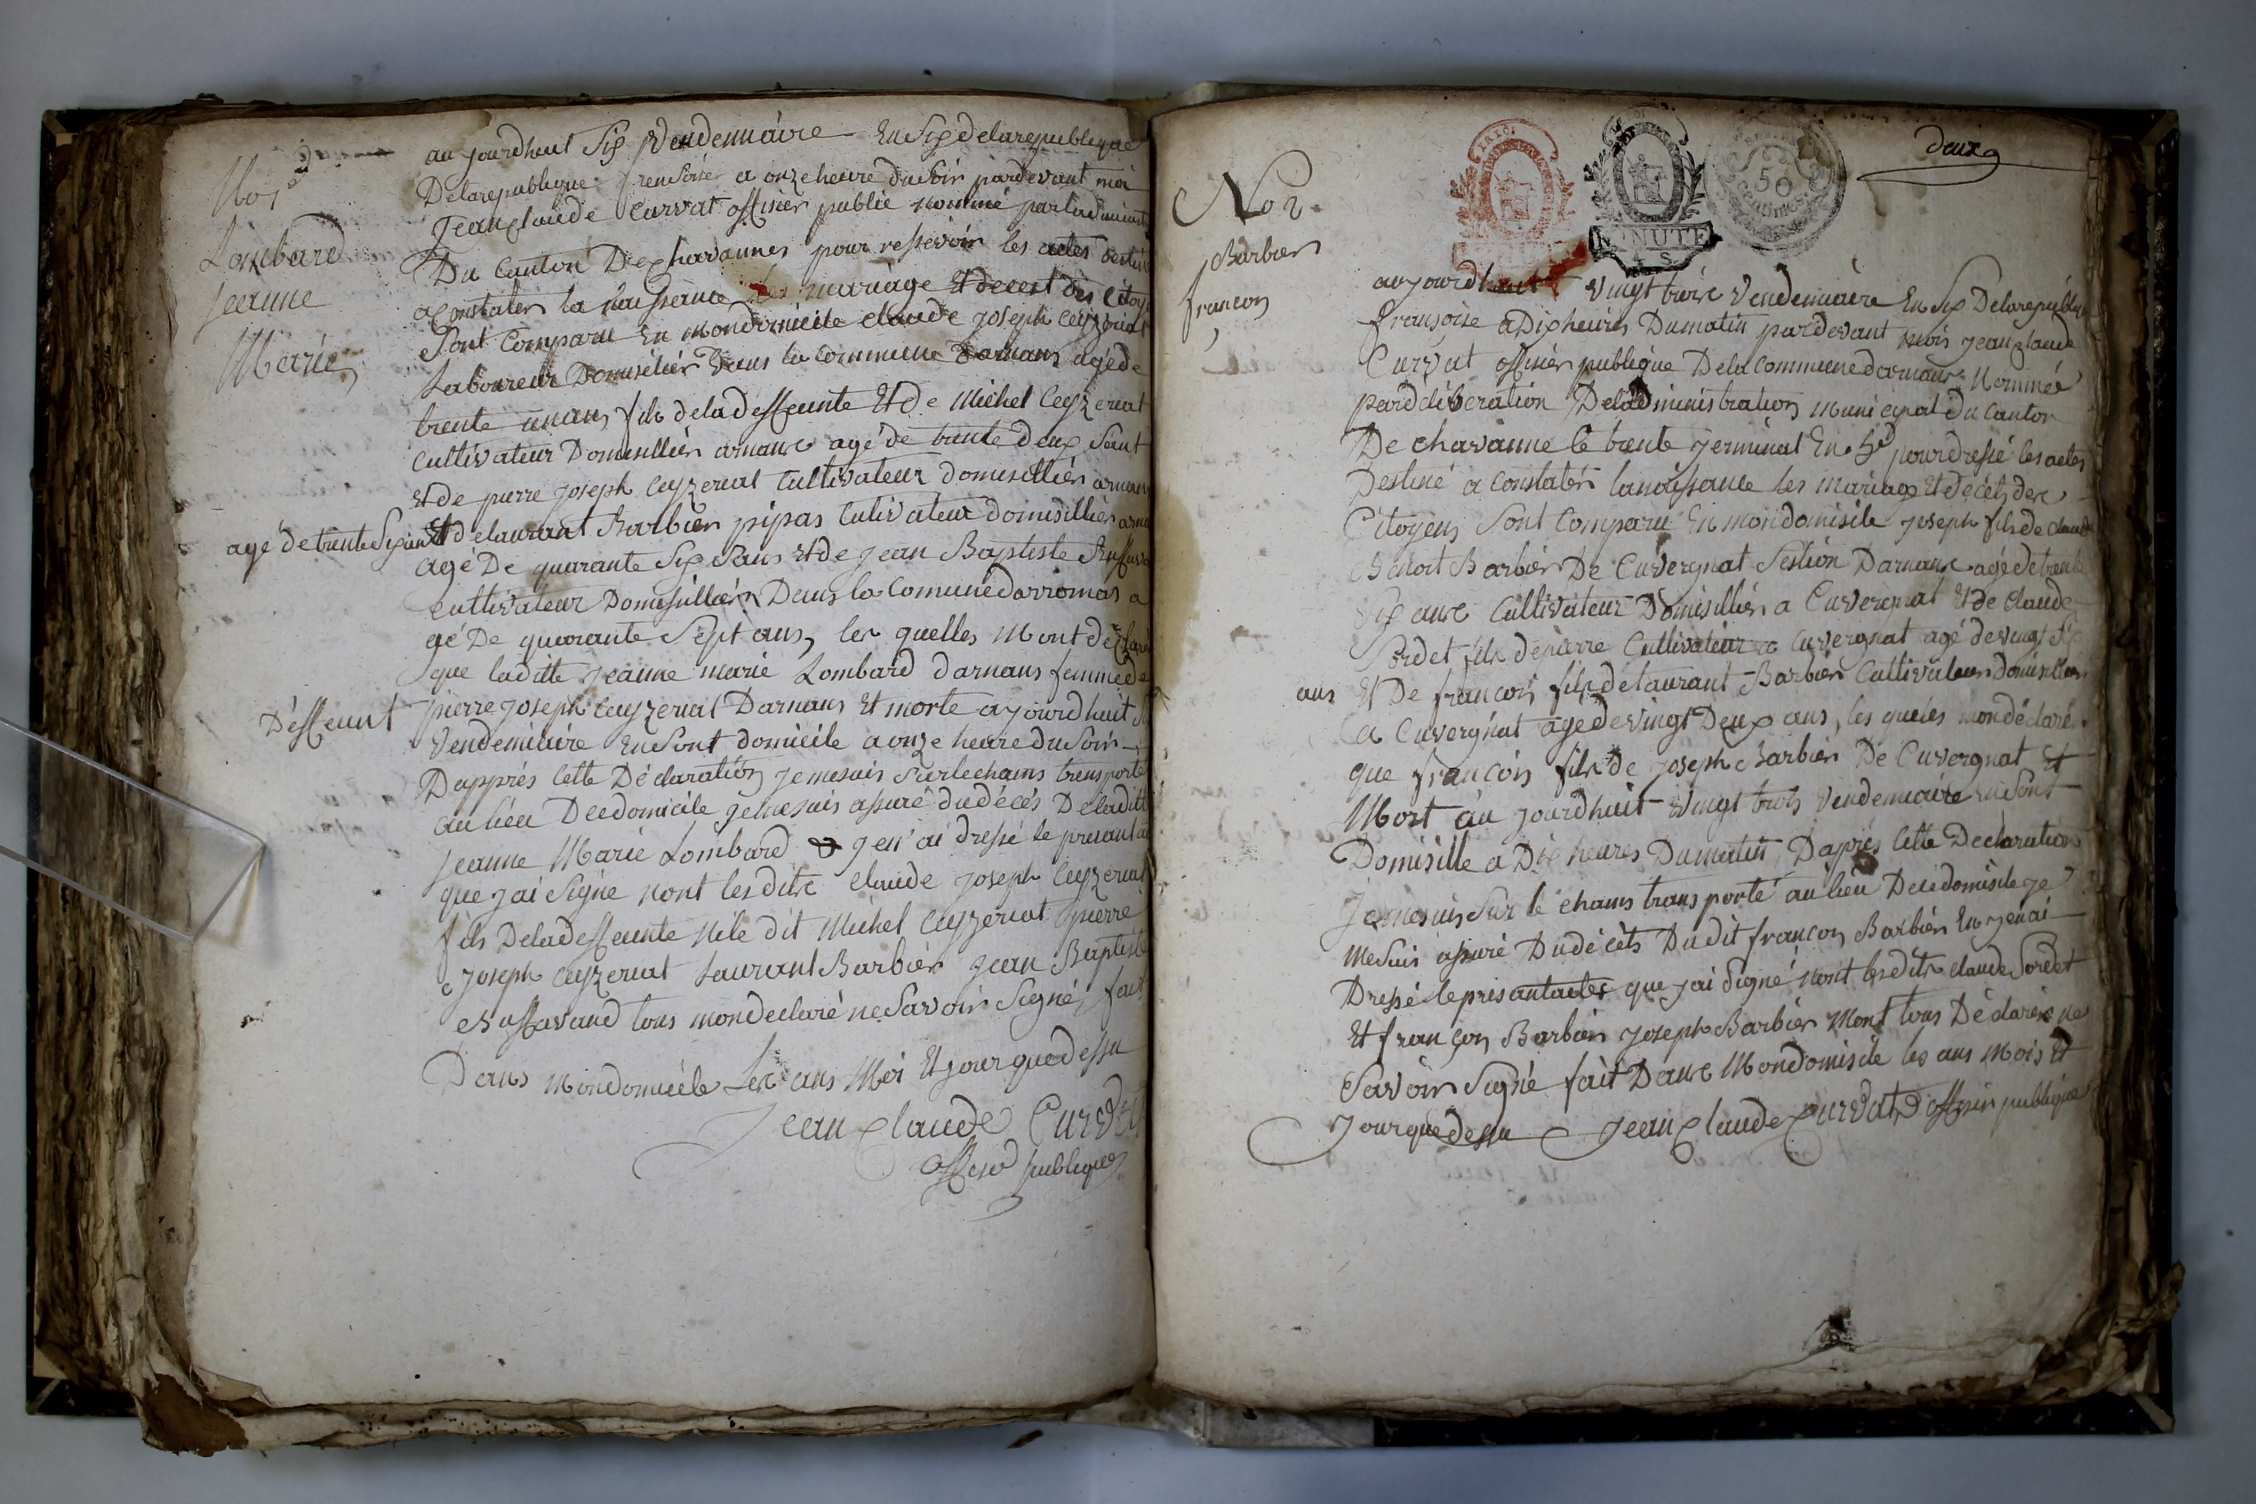 No 1er
Lombard
jeanne
Marie
aujourdhuit Six Vendemiaire En Six delarepublique
Delarepublique frensoise a onze heure du Soir pardevant moi
Jean Claude Curvat offisier publie nommé par
Du Canton De chavannes pour ressevoir les actes
a Constater la naissance les mariage Et decest des Citoy
Sont Comparu En mondomicile claude joseph Ceyzeriat
Laboureur Domisélier Dans la Commune Darnans agé de
trente un ans fils deladesseunte Et de Michel Ceyzeriat
cultivateur Domisillier arnans agé de trente deux
Et de pierre joseph Ceyzeriat Cultivateur domisillier arnans
agé de trente Six ans Et delaurant Barbier pipas Cultivateur domisillier
agé De quarante Six ans Et de jean Baptiste
cultivateur Domisillier Dans la Comune a
gé De quarante Sept ans, les quelles Mont déclaré
que laditte jeanne marie Lombard darnans femme de
Desseunt pierre joseph Ceyzeriat Darnans Et morte ajourdhuit
Vendemiaire En Sont domicile a onze heure du Soir
Dapprés Cette Déclaration je me suis Surlechams transporté
au lieu De ce domicile je me suis assuré du décés De laditte
jeanne Marie Lombard & jen' ai dressé le presant
que jai Signe nont les dits claude joseph Ceyzeriat
fils Deladesseunte ni le dit Michel Ceyzeriat pierre
joseph Ceyzeriat Laurant Barbier jean Baptiste
tous mon declaré ne Savoir Signé, fait
Dans mondomicile Les ans Moi Et jour que dessu
Jean Claude Curvat
offisié publique
deux
MINUTE
50
centimes
No 2
Barbier
francon
aujourdhuit Vingt troix Vendemiaire En Six Delarepublique
françoise a Dix heures Dumatin pardevant moi jean Claude
Curvat offisier publique Dela Commune darnans Nommée
par délibération Deladministration Municipal du Canton
De chavanne le trente jerminal En 5e pour dressé les actes
Destiné a Constatér lanaissance les mariage Et décéts des
Citoyens Sont Comparu En mondomisile joseph fils de claude
Benoit Barbier De Cuvergnat Section Darnans agé de trente
Six ans Cultivateur Domisillier a Cuvergnat Et de Claude
Sordet fils de pierre Cultivateur a Cuvergnat agé de vingt Six
ans Et De francois fils de laurant Barbier Cultivateur Domisillier
a Cuvergnat agé de vingt Deux ans, les queles mon déclaré
que françois fils de joseph Barbier De Cuvergnat Et
Mort au jourdhuit Vingt trois Vendemiaire En Sont
Domisille a Dix heures Dumatin, Daprés Cette Declaration
Je me suis Sur le chams transporté au lieu De ce domisile je
me Suis assuré Du décéts Dudit francon Barbier En jenai
Dressé le présant actes que jai Signé nont les dits claude Sordet
Et françon Barbier joseph Barbier Mont tous Déclarés ne
Savoir Signé fait Dans Mondomisile les ans Mois Et
Jour que dessu Jean Claude Curvat offisier publique